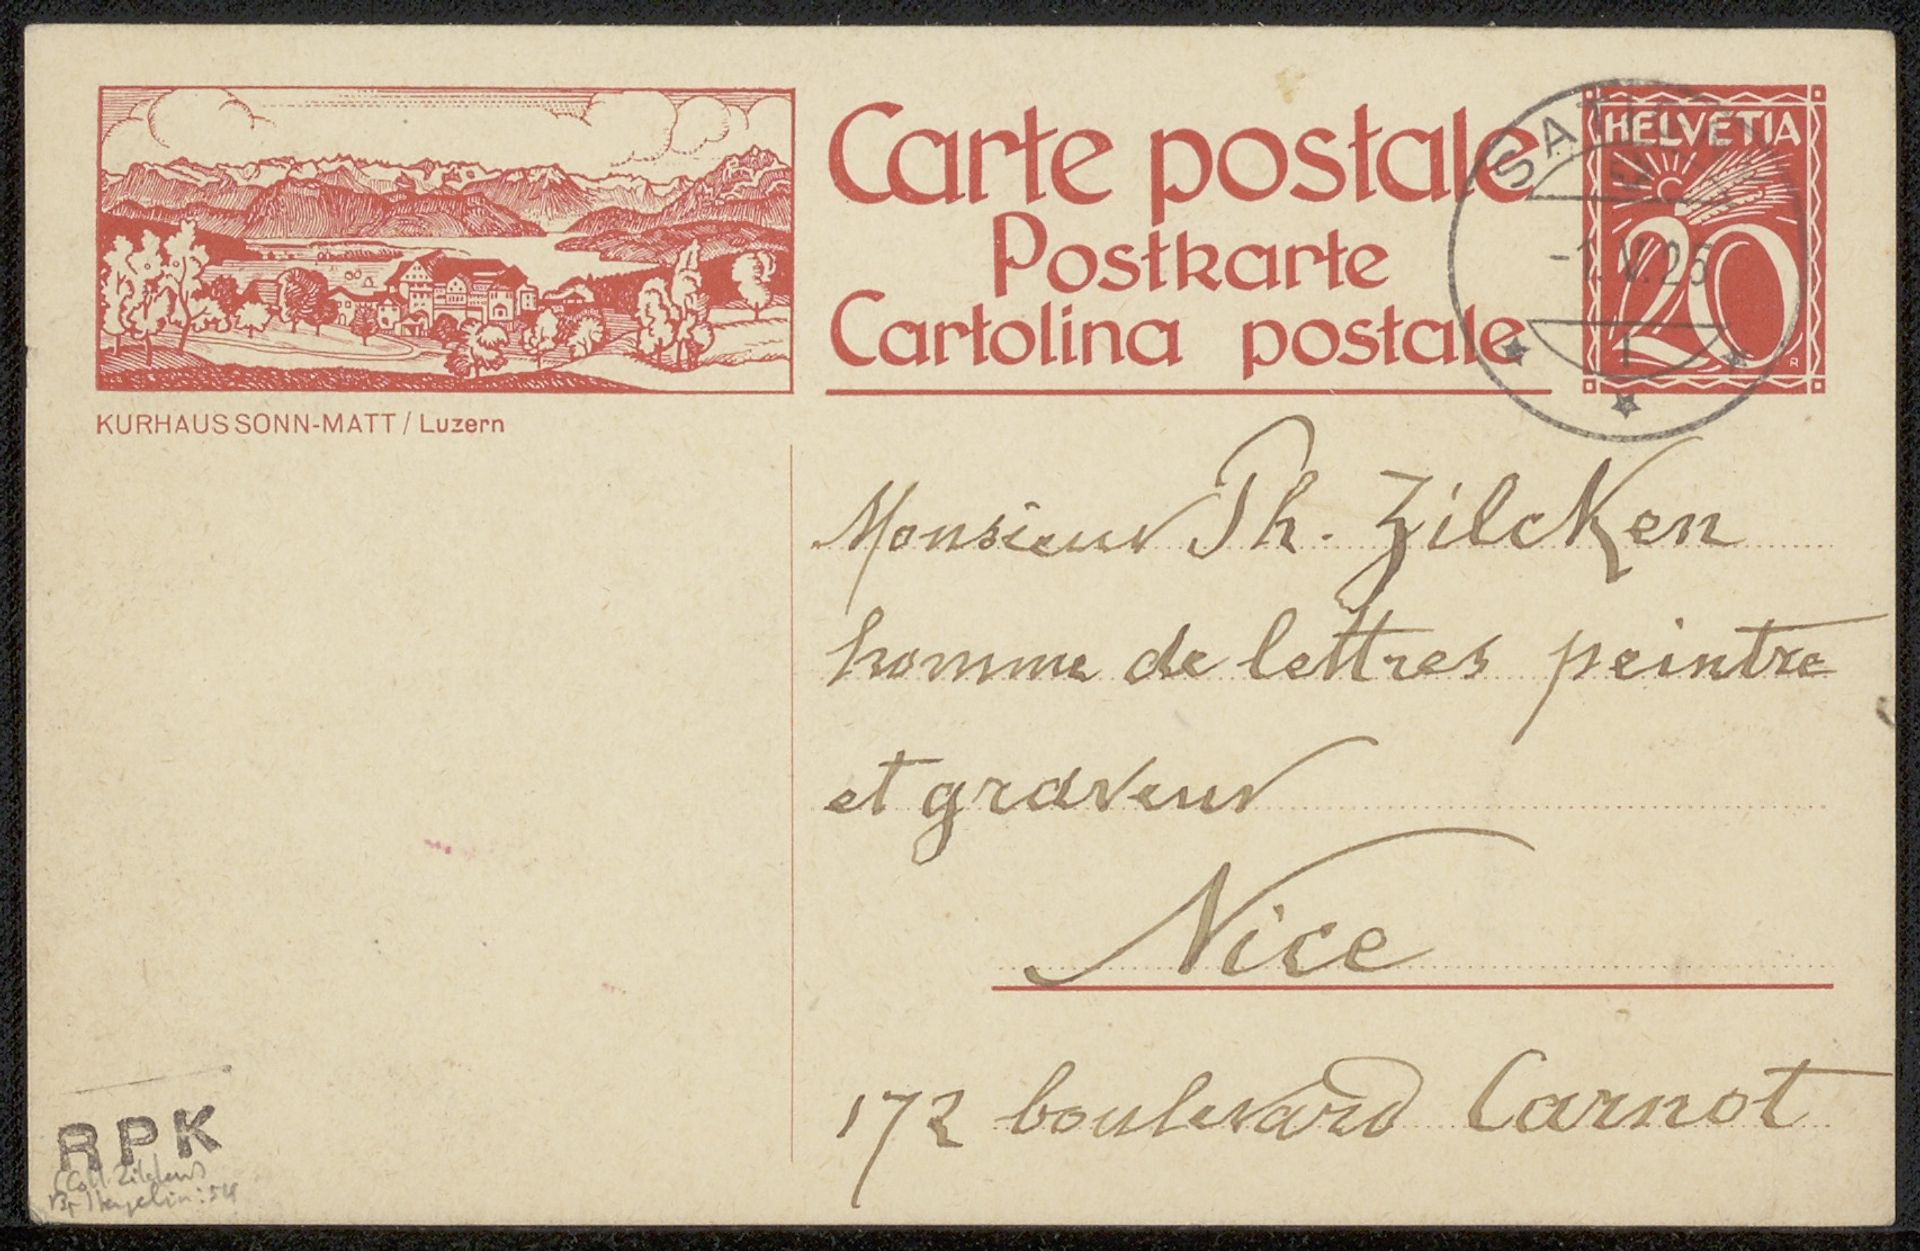 Carte postale
Postkarte
Cartolina postale
HELVETIA
20
-1.V.26
1
KURHAUS SONN-MATT / Luzern
Monsieur Ph. Zilcken
homme de lettres peintre
et graveur
Nice
172 boulevard Carnot
RPK
(Coll Zilcken)